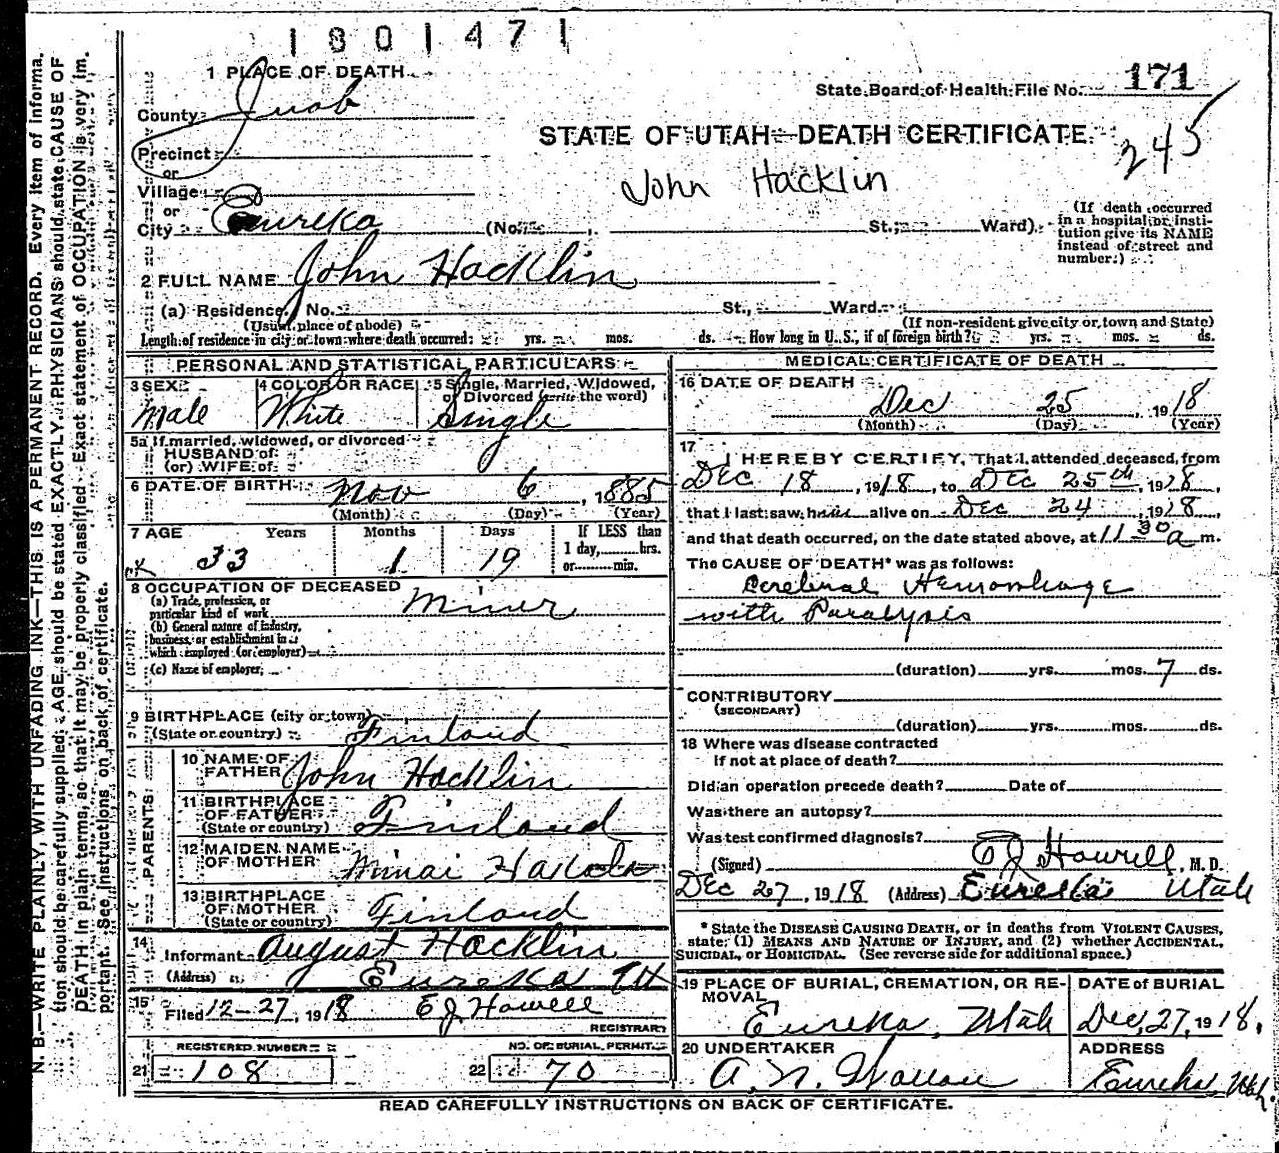 1801471
1 PLACE OF DEATH
State Board of Health File No. 171
County Juab
STATE OF UTAH—DEATH CERTIFICATE
245
Precinct
or
John Hacklin
Village
or
City Eureka (No. , St., Ward)
(If death occurred in a hospital or insti-
tution give its NAME
instead of street and
number.)
2 FULL NAME John Hacklin
(a) Residence. No. St., Ward.
(Usual place of abode) (If non-resident give city or town and State)
Length of residence in city or town where death occurred: yrs. mos. ds. How long in U. S., if of foreign birth? yrs. mos. ds.
PERSONAL AND STATISTICAL PARTICULARS
3 SEX
Male
4 COLOR OR RACE
White
5 Single, Married, Widowed,
or Divorced (write the word)
Single
5a If married, widowed, or divorced
HUSBAND of
(or) WIFE of
6 DATE OF BIRTH Nov 6, 1885
(Month) (Day) (Year)
7 AGE Years Months Days If LESS than
1 day, hrs.
33 1 19 or min.
8 OCCUPATION OF DECEASED
(a) Trade, profession, or
particular kind of work Miner
(b) General nature of industry,
business, or establishment in
which employed (or employer)
(c) Name of employer
9 BIRTHPLACE (city or town)
(State or country) Finland
PARENTS
10 NAME OF
FATHER John Hacklin
11 BIRTHPLACE
OF FATHER
(State or country) Finland
12 MAIDEN NAME
OF MOTHER Minai
13 BIRTHPLACE
OF MOTHER
(State or country) Finland
14
Informant August Hacklin
(Address) Eureka
15
Filed 12-27, 1918 E J Howell
REGISTRAR
REGISTERED NUMBER
21 108
NO. OF BURIAL PERMIT
22 70
MEDICAL CERTIFICATE OF DEATH
16 DATE OF DEATH
Dec 25, 1918
(Month) (Day) (Year)
17
I HEREBY CERTIFY, That I attended deceased from
Dec 18, 1918, to Dec 25th, 1918,
that I last saw him alive on Dec 24, 1918,
and that death occurred, on the date stated above, at 11 30 a m.
The CAUSE OF DEATH* was as follows:
Cerebral Hemorrhage
with Paralysis
(duration) yrs. mos. 7 ds.
CONTRIBUTORY
(SECONDARY)
(duration) yrs. mos. ds.
18 Where was disease contracted
if not at place of death?
Did an operation precede death? Date of
Was there an autopsy?
Was test confirmed diagnosis?
(Signed) E J Howell, M. D.
Dec 27, 1918 (Address) Eureka Utah
* State the DISEASE CAUSING DEATH, or in deaths from VIOLENT CAUSES,
state (1) MEANS AND NATURE OF INJURY, and (2) whether ACCIDENTAL,
SUICIDAL, or HOMICIDAL. (See reverse side for additional space.)
19 PLACE OF BURIAL, CREMATION, OR RE-
MOVAL
Eureka, Utah
DATE of BURIAL
Dec, 27, 1918.
20 UNDERTAKER
A. N.
ADDRESS
Eureka, Utah.
READ CAREFULLY INSTRUCTIONS ON BACK OF CERTIFICATE.
N. B.—WRITE PLAINLY, WITH UNFADING INK—THIS IS A PERMANENT RECORD. Every item of informa-
tion should be carefully supplied; AGE should be stated EXACTLY. PHYSICIANS should state CAUSE OF
DEATH in plain terms, so that it may be properly classified. Exact statement of OCCUPATION is very im-
portant. See instructions on back of certificate.